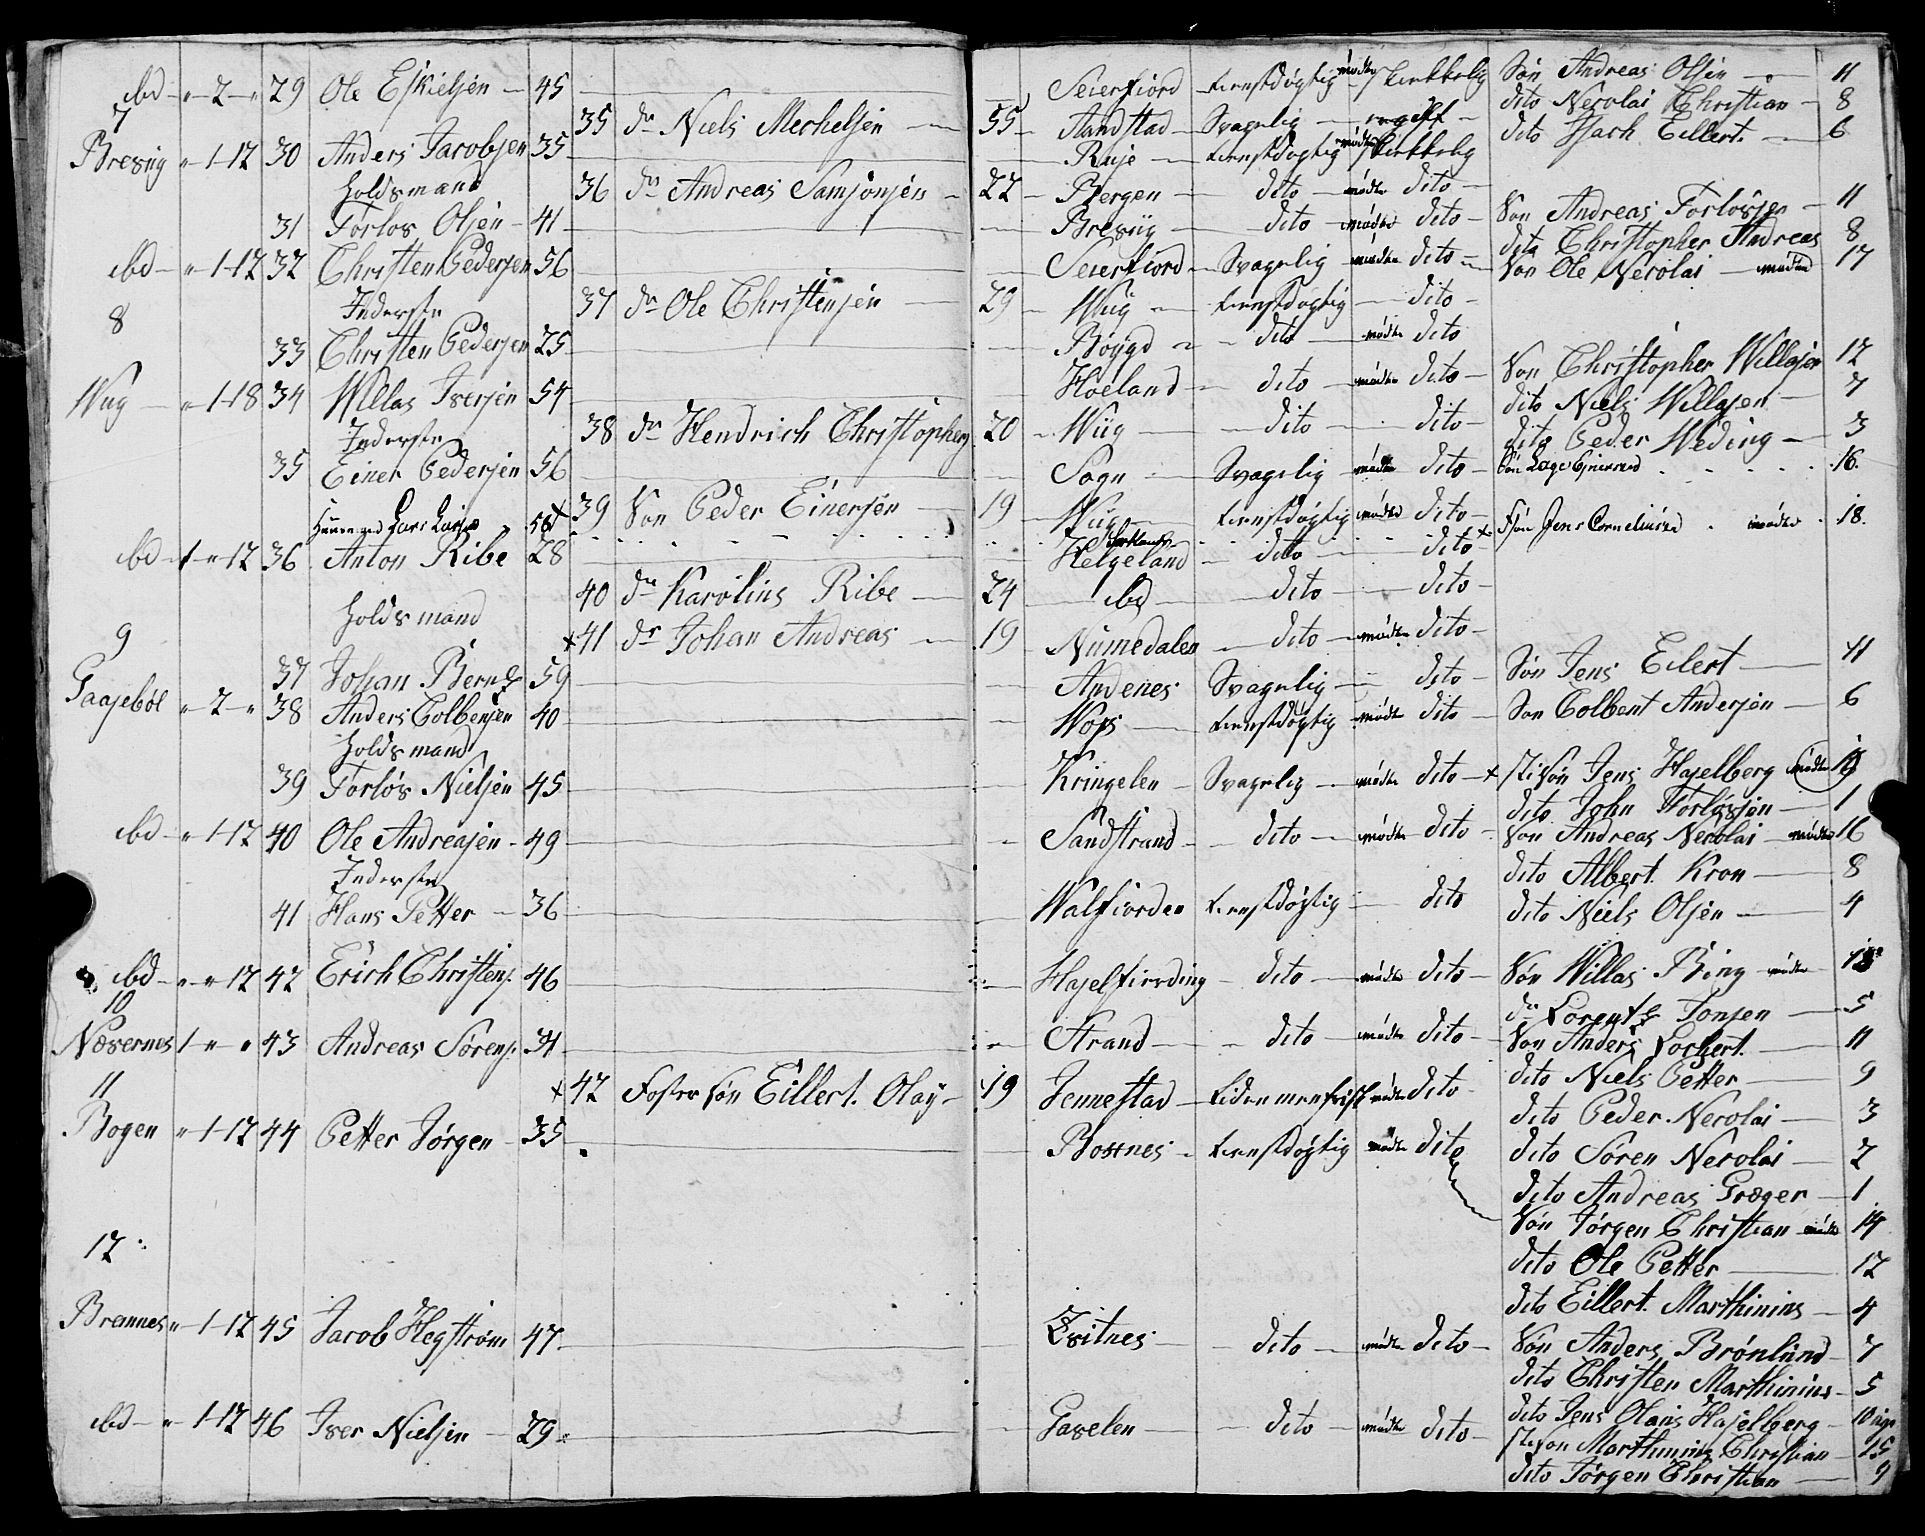 ibd - " - 2 - " 29 Ole Eskielsen - 45 - Seierfiord - tienstdøgtig mødte skrøbbelig Søn Andreas Olsen - 11
7
35 dn Niels Merhelsen - 55 - Aandstad - Svagelig - dito Nicolai Christian - 8
Bresvig " 1-12 30 Anders Jacobsen 35 - Ruje - tienstdøgtig mødte dito Hjach Eillert - 6
Holdsmand 36 dn Andreas Samsonsen - 22 - Bergen - dito - mødte dito -
31 Torlos Olsen - 41 - Bresvig - dito - mødte dito - Søn Andreas Torløssen - 11
dito Christopher Andreas 8
ibd - " 1-12 32 Christen Pedersen 56 - Seierfiord - Svagelig mødte dito - Søn Ole Nerolai - mødte 17
Inderste 37 dn Ole Christensen - 29 - Wiig - tienstdøgtig - dito -
8
33 Christen Pedersen 25 - Bøygd - dito - mødte dito
Wiig - " 1-18 34 Willas Iversen 54 - Hoeland - dito - mødte dito - Søn Christopher Willasen 12
dito Niels Willasen - 7
Inderste 38 dn Hendrich Christophers 20 - Wiig - dito - dito - dito Peder Weding - 3
35 Einer Pedersen 56 - Sogn - Svagelig - mødte dito - Søn Lage Einersen 16.
39 Søn Peder Einersen - 19 - Wiig - tienstdøgtig mødte dito -
Huusmand Lars Larsen 58 x dito - dito x Søn Jens Corneliusen . mødte . 18.
ibd - 1 - " 12 36 Anton Ribe 28 - Helgeland
40 dn Karolius Ribe - 24 - ibd - dito - dito -
Holdsmand
9
x 41 dn Johan Andreas - 19 - Numedalen - dito - mødte dito -
37 Johan Berntz 59 - Andenes Svagelig - dito - Søn Jens Eilert - 11
Gaasebøl " - 2 - " 38 Anders Colbensen 40 - Wops - tienstdøgtig - mødte dito - Søn Colbent Andersen - 6
Holdsmand
39 Torløs Nielsen - 45 - Kringelen - Svagelig - mødte dito - x Stivsøn Jens Haselberg mødte 19
dito John Torløssen - 1
ibd - " 1-12 40 Ole Andreasen - 49 - Sandstrand - dito - mødte dito - Søn Andreas Nerolai - mødte 16
Inderste dito Albert Kron - 8
41 Hans Petter - 36 - Walfiorden tienstdøgtig - dito dito Niels Olsen - 4
ibd - " - " 12 42 Erich Christens. 46 - Haselfiording - dito - mødte dito - Søn Willas Bing mødte 13
10
dn Lorentz Tonsen - 5
Næsernes 1 " " 43 Andreas Sørens. 31 - Strand - dito - mødte dito - Søn Anders Lochert. - 11
11
x 42 Foster søn Eillert Olay - 19 Jennestad - mødte dito - dito Niels Petter - 9
dito Peder Nerolai - 3
Bogen " 1-12 44 Petter Jørgen - 35 - Bostnes - tienstdøgtig mødte dito dito Søren Nerolai - 2
dito Andreas Græger - 1
Søn Jørgen Christian mødte 14
12
dito Ole Petter - 12
dito Eillert Marthinius - 4
Bremnes " - 1-12 45 Jacob Hegstrøm 47 - Qvitnes - dito - mødte dito - Søn Anders Brønlund - 7
dito Christen Marthinius - 5
ibd - " 1-12 46 Iver Nielsen - 29 - Gavelen - dito - mødte dito - dito Jens Olais Haselberg - 10
Stivson Marthinius Christian - 15
dito Jørgen Christian - 9